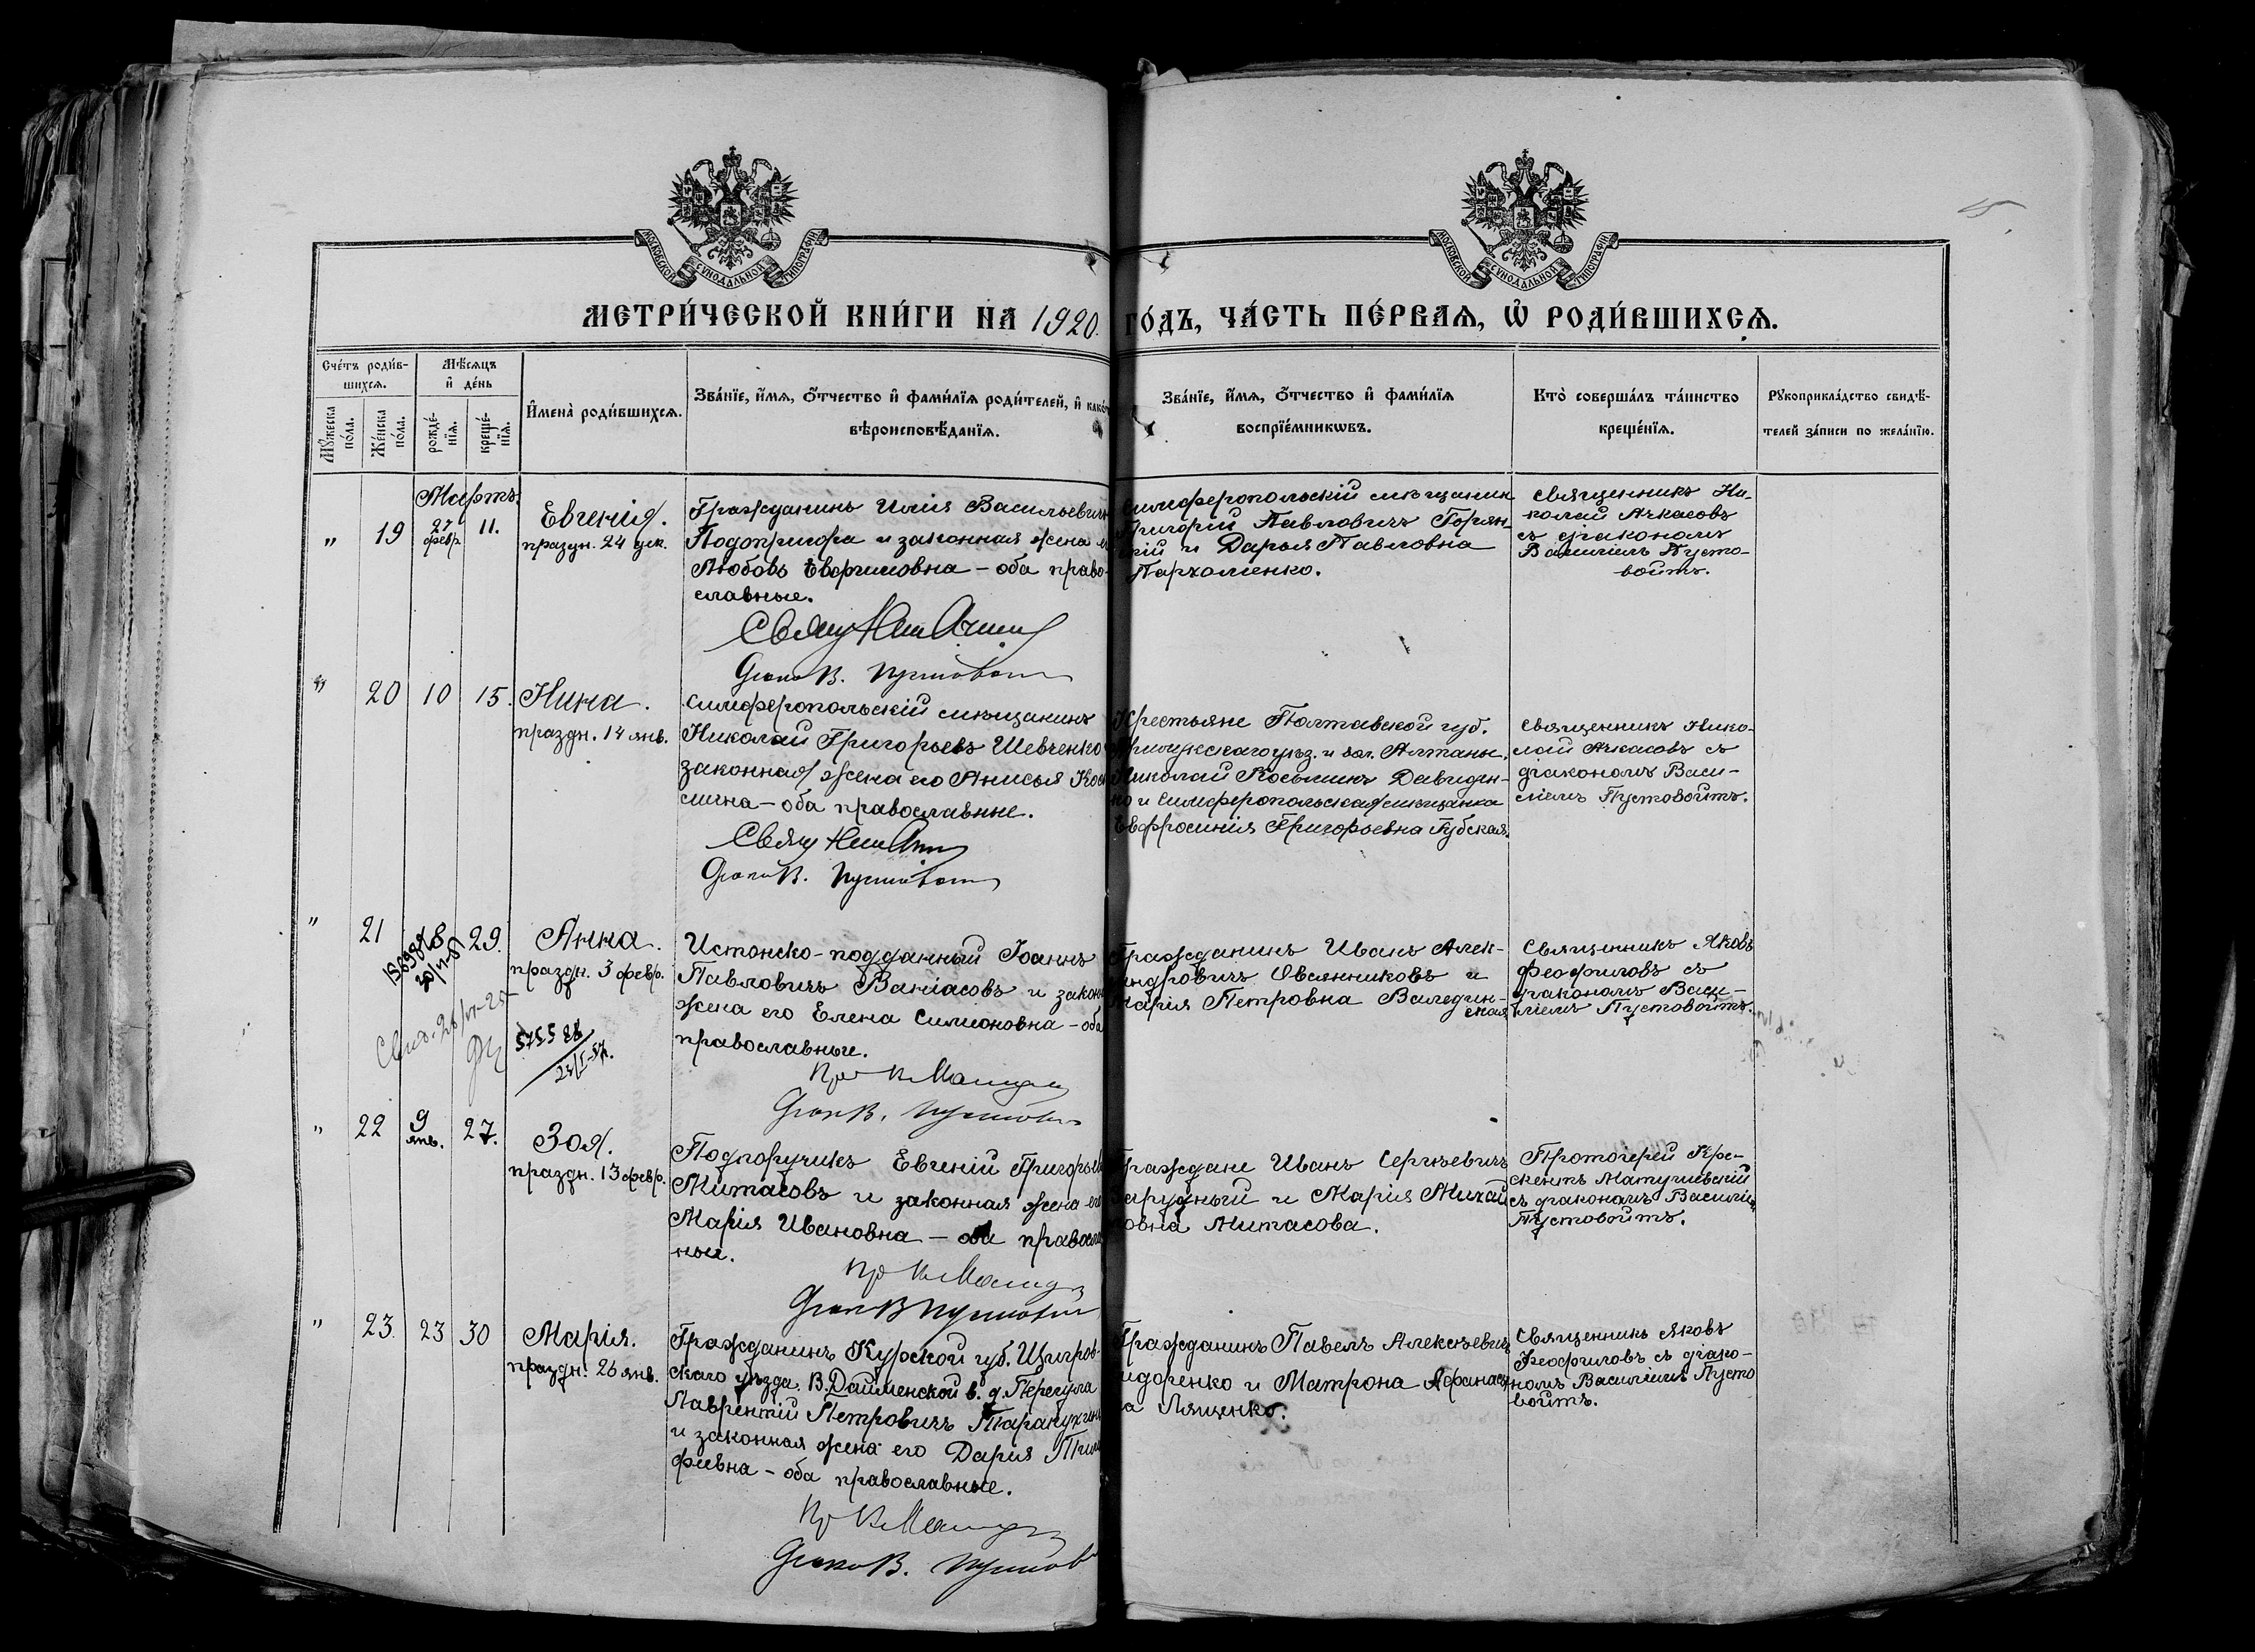 МОСКОВСКОЙ СѴНОДАЛЬНОЙ ТИПОГРАФІИ
МОСКОВСКОЙ СѴНОДАЛЬНОЙ ТИПОГРАФІИ
МЕТРИ́ЧЕСКОЙ КНИ́ГИ НА 1920. ГО́ДЪ, ЧА́СТЬ ПЕ́РВАЯ, Ѡ РОДИ́ВШИХСЯ.
Сче́тъ роди́в-
шихсѧ.
Мꙋ́жеска
по́ла.
Же́нска
по́ла.
Мѣ́сѧцъ
и҆ де́нь
рожде́-
нїѧ.
креще́-
нїѧ.
И҆мена̀ роди́вшихсѧ.
Зва́нїе, и҆́мѧ, ѻ҆́тчество и҆ фами́лїѧ роди́телей, и҆ како́
вѣроисповѣ́данїѧ.
Зва́нїе, и҆́мѧ, ѻ҆́тчество и҆ фами́лїѧ
воспрїе́мникѡвъ.
Кто̀ соверша́лъ та́инство
креще́нїѧ.
Рꙋкоприкла́дство свидѣ́-
телей за́писи по жела́нїю.
Мартъ.
„ 19 27 февр. 11. Евгенія.
праздн. 24 дек.
Гражданинъ Илія Васильевичъ
Подопригора и законная жена е
Любовь Евфимовна – оба право-
славные.
Симферопольскій мѣщанин
Григорій Павловичъ Горян-
скій и Дарья Павловна
Пархоменко.
Священникъ Ни-
колай Ачкасовъ
съ діакономъ
Василіемъ Пусто-
войтъ.
Свящ
В. Пустовойт
„ 20 10 15. Нина.
праздн. 14 янв.
Симферопольскій мѣщанинъ
Николай Григорьевъ Шевченко
законная жена его Анисья Кось
мична – оба православные.
Крестьяне Полтавской губ.
Прилукскаго уѣз. и вол. Алтаны.
Николай Косьминъ Давиден-
ко и Симферопольская мѣщанка
Евфросинія Григорьевна Губская.
Священникъ Нико-
лай Ачкасовъ съ
діакономъ Васи-
ліемъ Пустовойтъ.
Свящ
В. Пустовойт
„ 21 8 29. Анна.
праздн. 3 февр.
Истонско-подданный Іоаннъ
Павловичъ Ваніасовъ и закон
жена его Елена Симоновна – оба
православные.
Гражданинъ Иванъ Алек-
сандровичъ Овсянниковъ и
Марія Петровна Валедин-
ская
Священникъ Яковъ
Феофиловъ съ
діакономъ Васи-
ліемъ Пустовойтъ.
В. Пустовойт
„ 22 9 янв. 27. Зоя.
праздн. 13 февр.
Подпоручикъ Евгеній Григорьев
Митасовъ и законная жена его
Марія Ивановна – оба правосла
ные.
Граждане Иванъ Сергѣевичъ
Зарудный и Марія Михай
ловна Митасова.
Протоіерей Кре-
скентъ Матушевскій
съ діакономъ Василіемъ
Пустовойтъ.
В Пустовойт
„ 23. 23 30 Марія.
праздн. 26 янв.
Гражданинъ Курской губ. Щигров-
скаго уѣзда. В. Дайменской в. д. Перегула
Лаврентій Петровичъ Таранухинъ
и законная жена его Дарія
фиевна – оба православные.
Гражданинъ Павелъ Алексѣевичъ
идоренко и Матрона Афанась
а Лященко.
Священникъ Яковъ
Феофиловъ съ діако-
номъ Василіемъ Пусто
войтъ.
В. Пустов